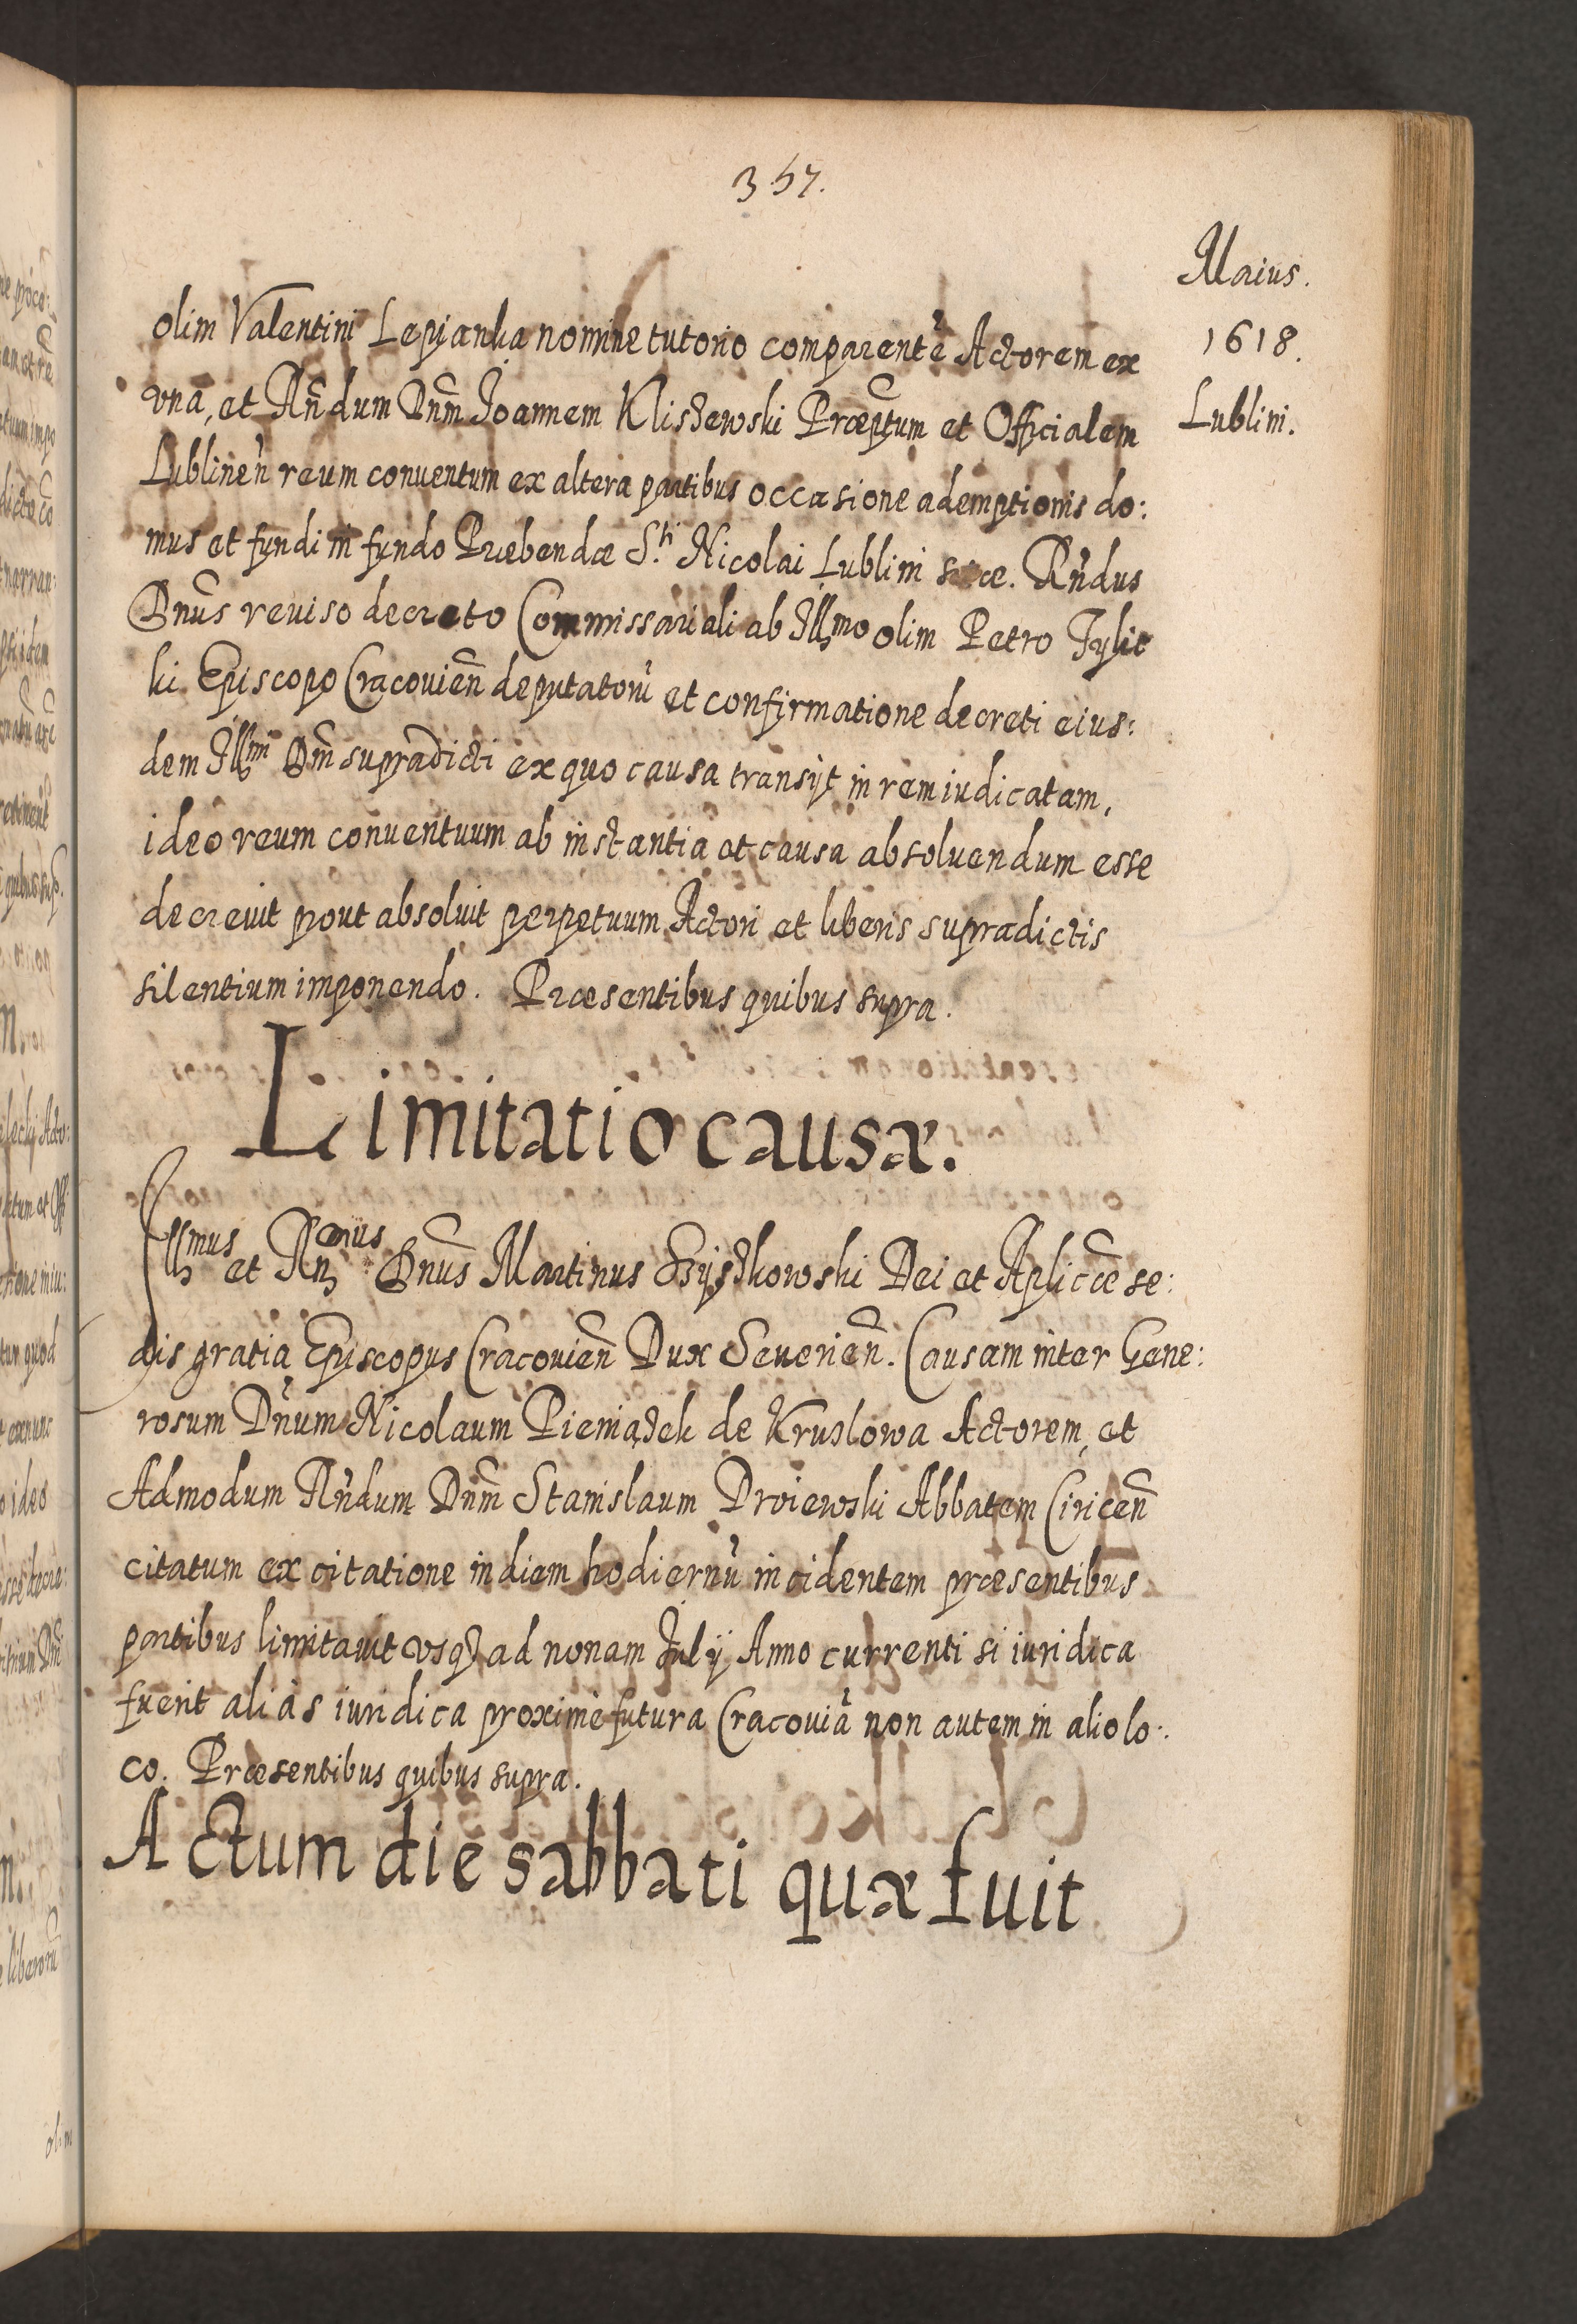 357.
Maius.
1618.
Lublini.
olim Valentini Lepianka nomine tutorio comparentẽ Actorem ex
vna, et Rñdum Dnm̃ Joannem Klisʒewski Præp̃tum et Officialem
Lublineñ reum conuentum ex altera partibus occasione ademptionis do:
mus et fundi in fundo Præbendæ S.ti Nicolai Lublini Rñdus
Dnũs reuiso decreto Commissariali ab Illmo olim Petro Tylic
ki Episcopo Cracouieñ deputatorũ et confirmatione decreti eius:
dem Illmi Dni supradicti ex quo causa transijt in rem iudicatam,
ideo reum conuentuum ab instantia et causa absoluendum esse
decreuit prout absoluit perpetuum Actori et liberis supradictis
silentium imponendo. Præsentibus quibus supra.
Limitatio causæ.
Illmus et Rñdmus Dnũs Martinus Sʒysʒkowski Dei et Aplicæ̃ se:
dis gratia Episcopus Cracouieñ Dux Seuerieñ. Causam inter Gene:
rosum Dñum Nicolaum Pieniąʒek de Kruʒlowa Actorem, et
Admodum Rñdum Dnm̃ Stanislaum Droiewski Abbatem Ciriceñ
citatum ex citatione in diem hodiernũ incidentem præsentibus
partibus limitauit vsqʒ ad nonam Julij Anno currenti si iuridica
fuerit aliàs iuridica proximè futura Cracouiæ non autem in alio lo:
co. Præsentibus quibus supra.
Actum die sabbati quæ fuit